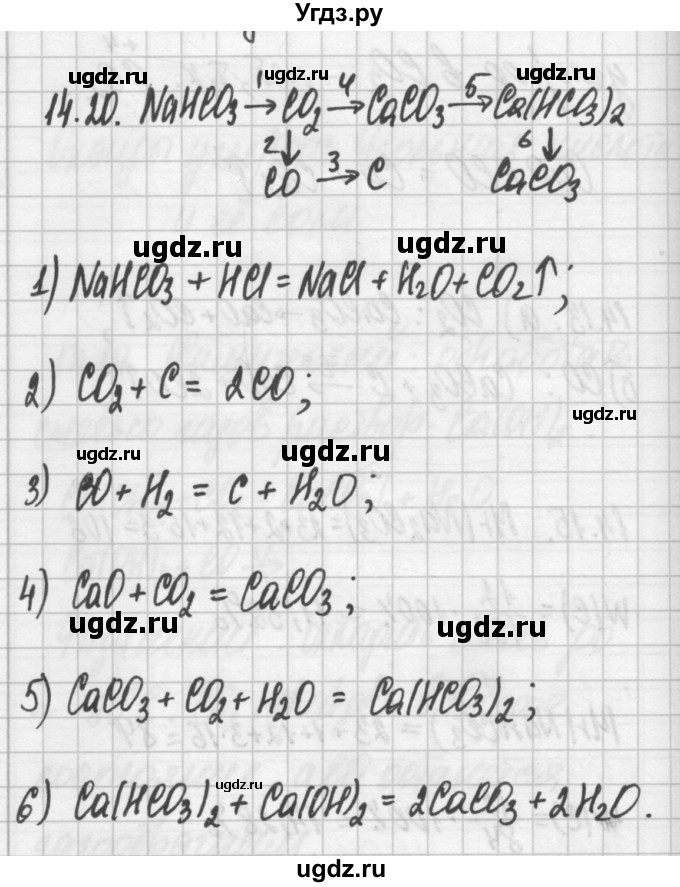 Угдз.ру
ugdz.ru ugdz.ru ugdz.ru
14.20. NaHCO3 →1 CO2 →4 CaCO3 →5 Ca(HCO3)2
2↓ 6↓
CO →3 C CaCO3
ugdz.ru ugdz.ru
ugdz.ru ugdz.ru
1) NaHCO3 + HCl = NaCl + H2O + CO2↑;
2) CO2 + C = 2CO;
ugdz.ru
ugdz.ru ugdz.ru
3) CO + H2 = C + H2O;
4) CaO + CO2 = CaCO3;
ugdz.ru ugdz.ru
5) CaCO3 + CO2 + H2O = Ca(HCO3)2;
ugdz.ru ugdz.ru
6) Ca(HCO3)2 + Ca(OH)2 = 2CaCO3 + 2H2O.
ugdz.ru